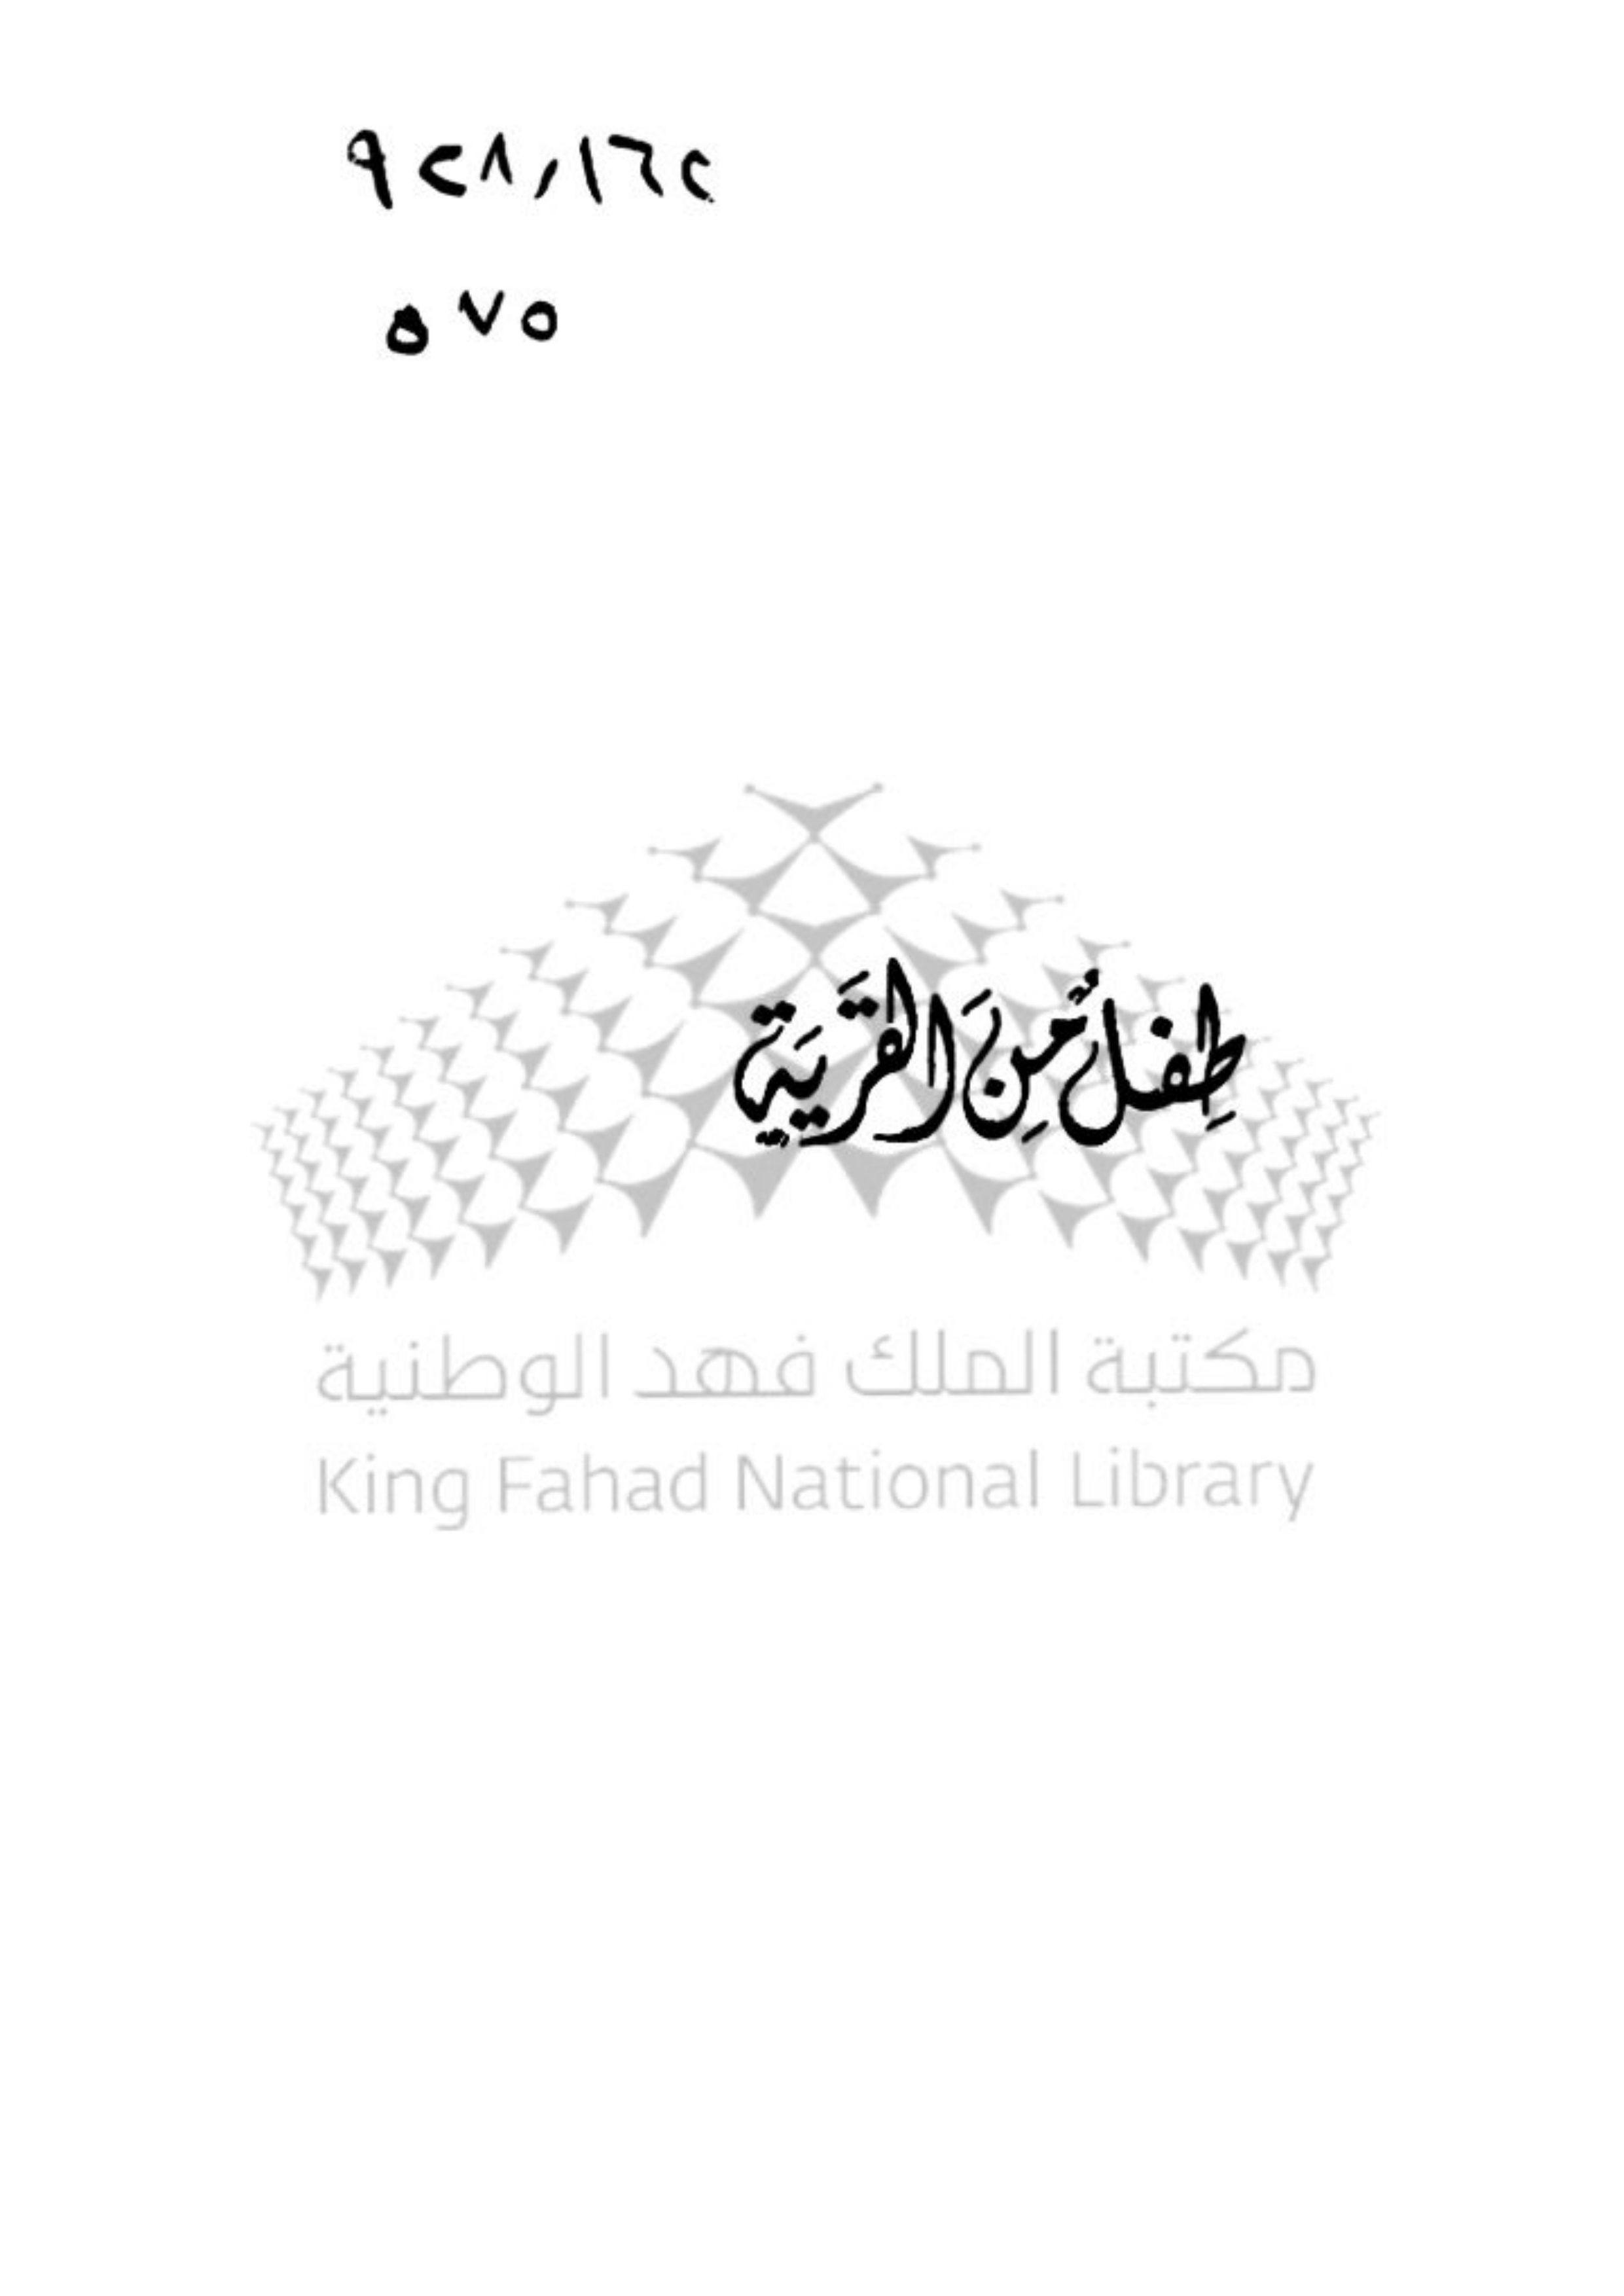 ٩٢٨,١٦٢
٥٧٥
طِفلٌ مِنَ القَريَة
مكتبة الملك فهد الوطنية
King Fahad National Library